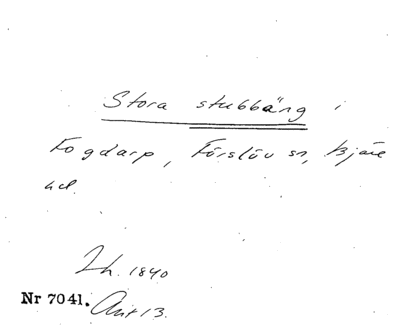 Stora stubbäng i
Fogdarp, Förslöv sn, Bjäre
hd.
Lh. 1840
Nr 7041. Akt 13.